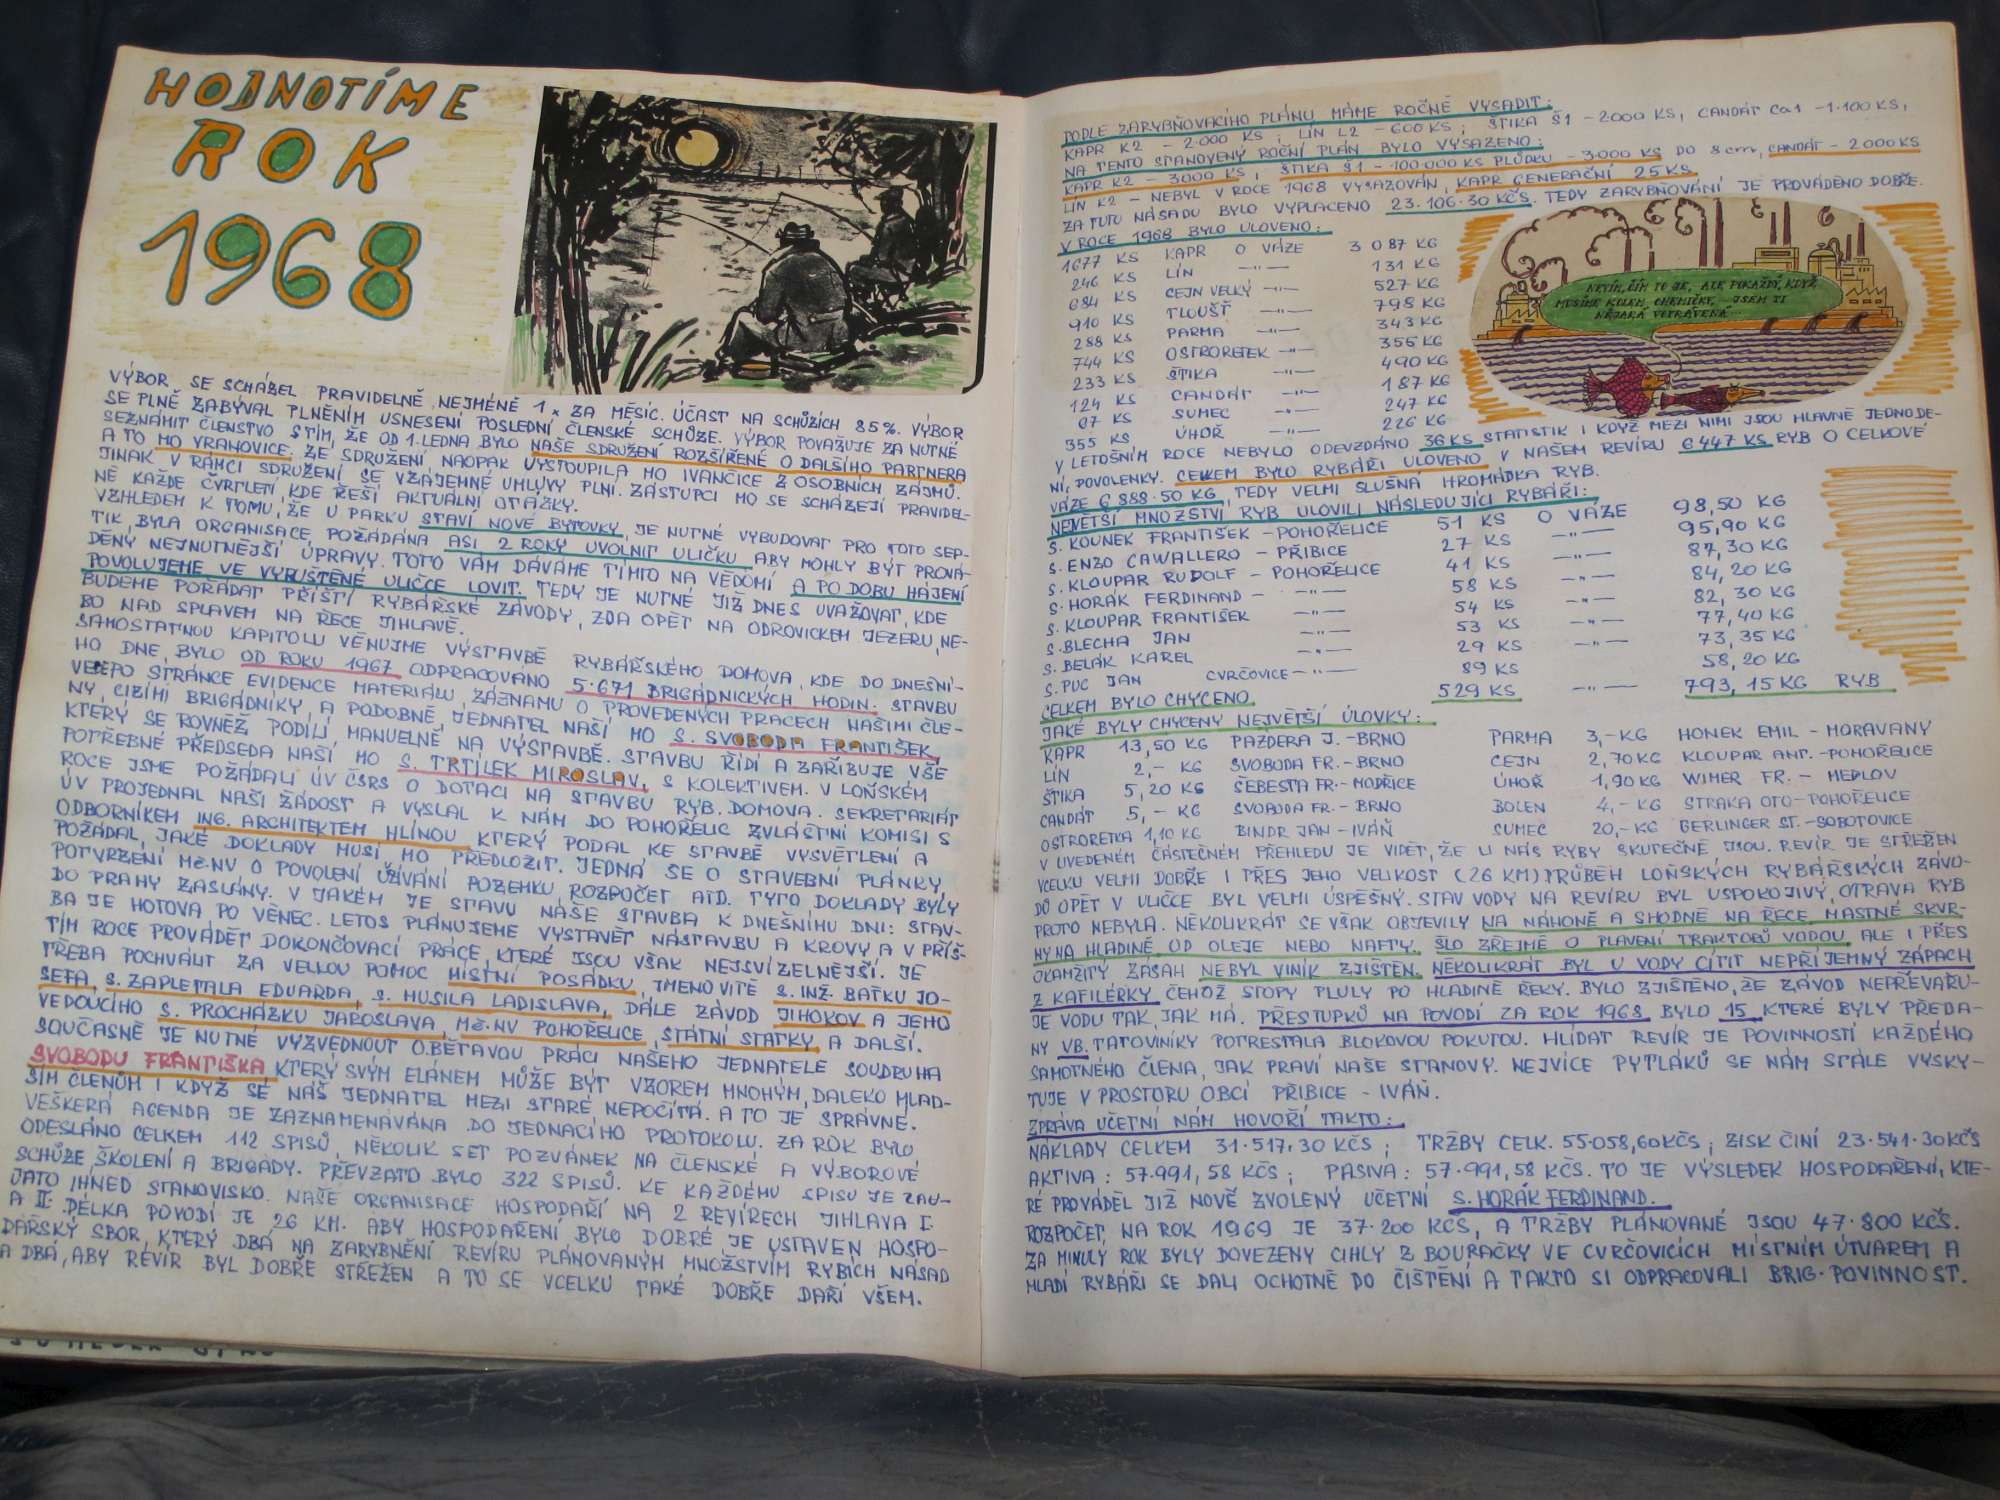 HODNOTÍME
ROK
1968
VÝBOR SE SCHÁZEL PRAVIDELNĚ NEJMÉNĚ 1x ZA MĚSÍC. ÚČAST NA SCHŮZÍCH 85%. VÝBOR
SE PLNĚ ZABÝVAL PLNĚNÍM USNESENÍ POSLEDNÍ ČLENSKÉ SCHŮZE. VÝBOR POVAŽUJE ZA NUTNÉ
SEZNÁMIT ČLENSTVO S TÍM, ŽE OD 1. LEDNA BYLO NAŠE SDRUŽENÍ ROZŠÍŘENÉ O DALŠÍHO PARTNERA
A TO MO VRANOVICE. ZE SDRUŽENÍ, NAOPAK VYSTOUPILA MO IVANČICE Z OSOBNÍCH ZÁJMŮ.
JINAK V RÁMCI SDRUŽENÍ SE VZÁJEMNÉ UMLUVY PLNÍ. ZÁSTUPCI MO SE SCHÁZEJÍ PRAVIDEL-
NĚ KAŽDÉ ČTVRTLETÍ, KDE ŘEŠÍ AKTUÁLNÍ OTÁZKY.
VZHLEDEM K TOMU, ŽE U PARKU STAVÍ NOVÉ BYTOVKY, JE NUTNÉ VYBUDOVAT PRO TOTO SEP-
TIK, BYLA ORGANISACE POŽÁDÁNA ASI 2 ROKY UVOLNIT ULIČKU ABY MOHLY BÝT PROVÁ-
DĚNY NEJNUTNĚJŠÍ ÚPRAVY. TOTO VÁM DÁVÁME TÍMTO NA VĚDOMÍ A PO DOBU HÁJENÍ
POVOLUJEME VE VYPUŠTĚNÉ ULIČCE LOVIT. TEDY JE NUTNÉ JIŽ DNES UVAŽOVAT, KDE
BUDEME POŘÁDAT PŘÍŠTÍ RYBÁŘSKÉ ZÁVODY, ZDA OPĚT NA ODROVICKEM JEZERU, NE-
BO NAD SPLAVEM NA ŘECE JIHLAVĚ.
SAMOSTATNOU KAPITOLU VĚNUJME VÝSTAVBĚ RYBÁŘSKÉHO DOMOVA, KDE DO DNEŠNÍ-
HO DNE, BYLO OD ROKU 1967 ODPRACOVÁNO 5.671 BRIGÁDNICKÝCH HODIN. STAVBU
VEDE PO STRÁNCE EVIDENCE MATERIÁLU, ZÁZNAMU O PROVEDENÝCH PRACECH NAŠIMI ČLE-
NY, CIZÍMI BRIGÁDNÍKY, A PODOBNĚ, JEDNATEL NAŠÍ MO S. SVOBODA FRANTIŠEK,
KTERÝ SE ROVNĚŽ PODÍLÍ MANUELNĚ NA VÝSTAVBĚ. STAVBU ŘÍDÍ A ZAŘIZUJE VŠE
POTŘEBNÉ PŘEDSEDA NAŠÍ MO S. TRTÍLEK MIROSLAV, S KOLEKTIVEM. V LOŇSKÉM
ROCE JSME POŽÁDALI ÚV ČSRS O DOTACI NA STAVBU RYB. DOMOVA. SEKRETARIÁT
ÚV PROJEDNAL NAŠI ŽÁDOST A VYSLAL K NÁM DO POHOŘELIC ZVLÁŠTNÍ KOMISI S
ODBORNÍKEM ING. ARCHITEKTEM HLÍNOU KTERÝ PODAL KE STAVBĚ VYSVĚTLENÍ A
POŽÁDAL, JAKÉ DOKLADY MUSÍ MO PŘEDLOŽIT. JEDNÁ SE O STAVEBNÍ PLÁNKY,
POTVRZENÍ MĚ.NV O POVOLENÍ UŽÍVÁNÍ POZEMKU, ROZPOČET ATD. TYTO DOKLADY BYLY
DO PRAHY ZASLÁNY. V JAKÉM JE STAVU NAŠE STAVBA K DNEŠNÍMU DNI: STAV-
BA JE HOTOVA PO VĚNEC. LETOS PLÁNUJEME VYSTAVĚT NÁSTAVBU A KROVY, A V PŘÍŠ-
TÍM ROCE PROVÁDĚT DOKONČOVACÍ PRÁCE, KTERÉ JSOU VŠAK NEJSVÍZELNĚJŠÍ. JE
TŘEBA POCHVÁLIT ZA VELKOU POMOC MÍSTNÍ POSÁDKU, JMENOVITĚ S. INŽ. BAŤKU JO-
SEFA, S. ZAPLETALA EDUARDA, S. MUSILA LADISLAVA, DÁLE ZÁVOD JIHOKOV A JEHO
VEDOUCÍHO S. PROCHÁZKU JAROSLAVA, MĚ.NV POHOŘELICE, STÁTNÍ STATKY, A DALŠÍ.
SOUČASNĚ JE NUTNÉ VYZVEDNOUT OBĚTAVOU PRÁCI NAŠEHO JEDNATELE SOUDRUHA
SVOBODU FRANTIŠKA KTERÝ SVÝM ELÁNEM MŮŽE BÝT VZOREM MNOHÝM, DALEKO MLAD-
ŠÍM ČLENŮM I KDYŽ SE NÁŠ JEDNATEL MEZI STARÉ NEPOČÍTÁ. A TO JE SPRÁVNÉ.
VEŠKERÁ AGENDA JE ZAZNAMENÁVÁNA DO JEDNACÍHO PROTOKOLU. ZA ROK BYLO
ODESLÁNO CELKEM 112 SPISŮ, NĚKOLIK SET POZVÁNEK NA ČLENSKÉ A VÝBOROVÉ
SCHŮZE, ŠKOLENÍ A BRIGÁDY. PŘEVZATO BYLO 322 SPISŮ. KE KAŽDÉMU SPISU JE ZAU-
JATO IHNED STANOVISKO. NAŠE ORGANISACE HOSPODAŘÍ NA 2 REVÍRECH JIHLAVA I.
A II. DÉLKA POVODÍ JE 26 KM. ABY HOSPODAŘENÍ BYLO DOBRÉ JE USTAVEN HOSPO-
DÁŘSKÝ SBOR, KTERÝ DBÁ NA ZARYBNĚNÍ REVÍRU PLÁNOVANÝM MNOŽSTVÍM RYBÍCH NÁSAD
A DBÁ, ABY REVÍR BYL DOBŘE STŘEŽEN A TO SE VCELKU TAKÉ DOBŘE DAŘÍ VŠEM.
PODLE ZARYBŇOVACÍHO PLÁNU MÁME ROČNĚ VYSADIT:
KAPR K2 - 2.000 KS ; LÍN L2 - 600 KS ; ŠTIKA Š1 - 2000 KS, CANDÁT Ca1 - 1.100 KS,
NA TENTO STANOVENÝ ROČNÍ PLÁN BYLO VYSAZENO:
KAPR K2 - 3000 KS, ŠTIKA Š1 - 100.000 KS PLŮDKU - 3.000 KS DO 8 cm, CANDÁT - 2000 KS
LÍN K2 - NEBYL V ROCE 1968 VYSAZOVÁN, KAPR GENERAČNÍ 25 KS.
ZA TUTO NÁSADU BYLO VYPLACENO 23.106.30 KČS. TEDY ZARYBŇOVÁNÍ JE PROVÁDĚNO DOBŘE.
V ROCE 1968 BYLO ULOVENO:
1677 KS KAPR O VÁZE 3 087 KG
246 KS LÍN -"- 131 KG
684 KS CEJN VELKÝ -"- 527 KG
910 KS TLOUŠŤ -"- 798 KG
288 KS PARMA -"- 343 KG
744 KS OSTRORETEK -"- 355 KG
233 KS ŠTIKA -"- 490 KG
124 KS CANDÁT -"- 187 KG
67 KS SUMEC -"- 247 KG
355 KS ÚHOŘ -"- 226 KG
NEVÍM, ČÍM TO JE, ALE POKAŽDÝ, KDYŽ
MUSÍME KOLEM, CHEMIČKY, JSEM TI
NĚJAKÁ VOTRÁVENÁ...
V LETOŠNÍM ROCE NEBYLO ODEVZDÁNO 36 KS STATISTIK I KDYŽ MEZI NIMI JSOU HLAVNĚ JEDNODE-
NÍ, POVOLENKY. CELKEM BYLO RYBÁŘI ULOVENO V NAŠEM REVÍRU 6 447 KS RYB O CELKOVÉ
VÁZE 6 888.50 KG, TEDY VELMI SLUŠNÁ HROMÁDKA RYB.
NEJVĚTŠÍ MNOŽSTVÍ RYB ULOVILI NÁSLEDUJÍCÍ RYBÁŘI:
S. KOUNEK FRANTIŠEK - POHOŘELICE 51 KS O VÁZE 98,50 KG
S. ENZO CAWALLERO - PŘIBICE 27 KS -"- 95,90 KG
S. KLOUPAR RUDOLF - POHOŘELICE 41 KS -"- 87,30 KG
S. HORÁK FERDINAND - -"- 58 KS -"- 84,20 KG
S. KLOUPAR FRANTIŠEK -"- 54 KS -"- 82,30 KG
S. BLECHA JAN -"- 53 KS -"- 77,40 KG
S. BELÁK KAREL -"- 29 KS -"- 73,35 KG
S. PUC JAN CVRČOVICE -"- 89 KS 58,20 KG
CELKEM BYLO CHYCENO 529 KS -"- 793,15 KG RYB
JAKÉ BYLY CHYCENY NEJVĚTŠÍ ÚLOVKY:
KAPR 13,50 KG PAŽDERA J. - BRNO PARMA 3,- KG HONEK EMIL - MORAVANY
LÍN 2,- KG SVOBODA FR. - BRNO CEJN 2,70 KG KLOUPAR ANT. - POHOŘELICE
ŠTIKA 5,20 KG ŠEBESTA FR. - MODŘICE ÚHOŘ 1,90 KG WIMER FR. - MEDLOV
CANDÁT 5,- KG SVOBODA FR. - BRNO BOLEN 4,- KG STRAKA OTO - POHOŘELICE
OSTRORETKA 1,10 KG BINDR JAN - IVÁŇ SUMEC 20,- KG GERLINGER ST. - SOBOTOVICE
V UVEDENÉM ČÁSTEČNÉM PŘEHLEDU JE VIDĚT, ŽE U NÁS RYBY SKUTEČNĚ JSOU. REVÍR JE STŘEŽEN
VCELKU VELMI DOBŘE I PŘES JEHO VELIKOST (26 KM) PRŮBĚH LOŇSKÝCH RYBÁŘSKÝCH ZÁVO-
DŮ OPĚT V ULIČCE BYL VELMI ÚSPĚŠNÝ. STAV VODY NA REVÍRU BYL USPOKOJIVÝ, OTRAVA RYB
PROTO NEBYLA. NĚKOLIKRÁT SE VŠAK OBJEVILY NA NÁHONĚ A SHODNĚ NA ŘECE, MASTNÉ SKVR-
NY NA HLADINĚ OD OLEJE NEBO NAFTY. ŠLO ZŘEJMĚ O PLAVENÍ TRAKTORŮ VODOU, ALE I PŘES
OKAMŽITÝ ZÁSAH NEBYL VINÍK ZJIŠTĚN. NĚKOLIKRÁT BYL U VODY CÍTIT NEPŘÍJEMNÝ ZÁPACH
Z KAFILÉRKY ČEHOŽ STOPY PLULY PO HLADINĚ ŘEKY. BYLO ZJIŠTĚNO, ŽE ZÁVOD NEPŘEVAŘU-
JE VODU TAK, JAK MÁ. PŘESTUPKŮ NA POVODÍ ZA ROK 1968 BYLO 15, KTERÉ BYLY PŘEDÁ-
NY VB. TATO VINÍKY POTRESTALA BLOKOVOU POKUTOU. HLÍDAT REVÍR JE POVINNOSTÍ KAŽDÉHO
SAMOTNÉHO ČLENA, JAK PRAVÍ NAŠE STANOVY. NEJVÍCE PYTLÁKŮ SE NÁM STÁLE VYSKY-
TUJE V PROSTORU OBCÍ PŘIBICE - IVÁŇ.
ZPRÁVA ÚČETNÍ NÁM HOVOŘÍ TAKTO:
NÁKLADY CELKEM 31.517,30 KČS ; TRŽBY CELK. 55.058,60 KČS ; ZISK ČINÍ 23.541.30 KČS
AKTIVA: 57.991,58 KČS ; PASIVA: 57.991,58 KČS. TO JE VÝSLEDEK HOSPODAŘENÍ, KTE-
RÉ PROVÁDĚL JIŽ NOVĚ ZVOLENÝ ÚČETNÍ S. HORÁK FERDINAND.
ROZPOČET, NA ROK 1969 JE 37.200 KČS, A TRŽBY PLÁNOVANÉ JSOU 47.800 KČS.
ZA MINULÝ ROK BYLY DOVEZENY CIHLY Z BOURAČKY VE CVRČOVICÍCH MÍSTNÍM ÚTVAREM A
MLADÍ RYBÁŘI SE DALI OCHOTNĚ DO ČIŠTĚNÍ A TAKTO SI ODPRACOVALI BRIG. POVINNOST.